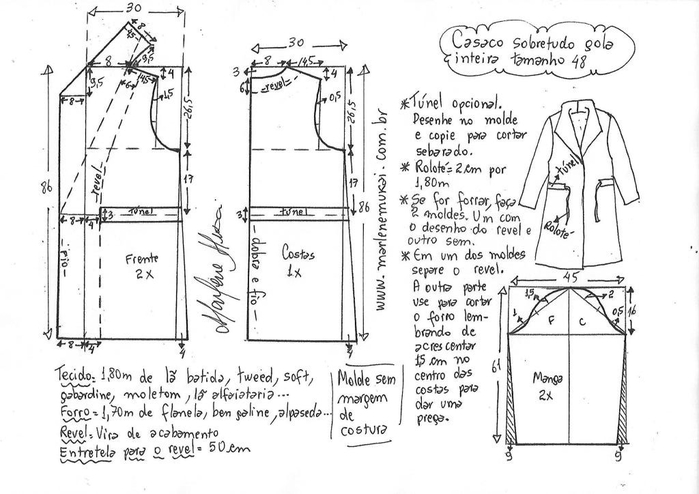 Casaco sobretudo gola
inteira tamanho 48
* Túnel opcional.
Desenhe no molde
e copie para cortar
sebarado.
* Rolotê = 2cm por
1,80m
* Se for forrar, faça
2 moldes. Um com
o desenho do revel e
outro sem.
* Em um dos moldes
separe o revel.
A outra parte
use para cortar
o forro lem-
brando de
acrescentar
15cm no
centro das
costas para
dar uma
prega.
túnel
Rolotê
30
8
15
9,5
8
14,5
4
9,5
6
1,5
26,5
8
revel
86
17
8
4
3
túnel
fio
Frente
2x
8
4
4
30
8
14,5
3
4
6
revel
0,5
26,5
17
3
túnel
86
dobra e fio
Costas
1x
4
Marlene Mukai
www.marlenemukai.com.br
45
1,5
2
1
0,5
F
C
16
61
Manga
2x
9
9
Tecido = 1,80m de lã batida, tweed, soft,
gabardine, moletom, lã alfaiataria...
Forro = 1,70m de flanela, ben galine, alpaseda...
Revel = Vira de acabamento
Entretela para o revel = 50cm
Molde sem
margem
de
costura